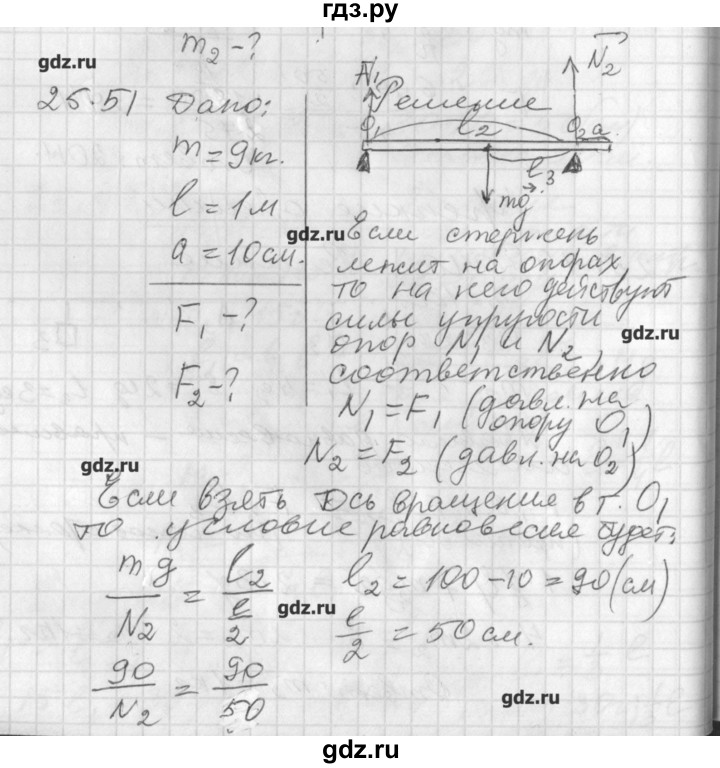 гдз.ру
m₂ - ?
gdz.ru
26.51 Дано:
m = 9 кг.
l = 1 м
a = 10 см.
F₁ - ?
F₂ - ?
Решение
N₁
N₂
O₁ l₂ O₂ a
l₃
mg
gdz.ru
Если стержень
лежит на опорах,
то на него действуют
силы упругости
опор N₁ и N₂,
gdz.ru
соответственно
N₁ = F₁ (давл. на
опору O₁)
N₂ = F₂ (давл. на O₂)
gdz.ru
Если взять ось вращение в т. O₁
то условие равновесия будет:
mg/N₂ = l₂/(l/2)
l₂ = 100 - 10 = 90 (см)
gdz.ru
l/2 = 50 см.
90/N₂ = 90/50
gdz.ru
gdz.ru